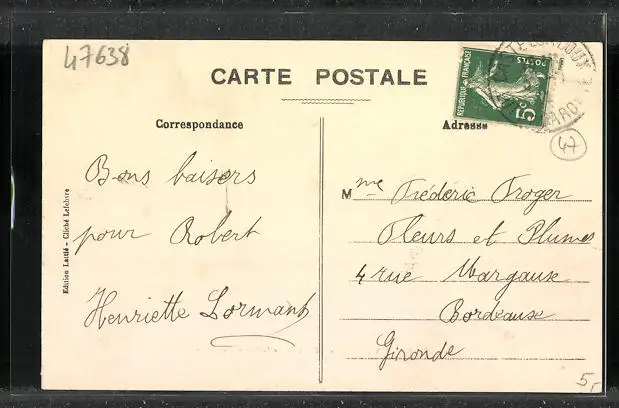 47638
CARTE POSTALE
REPUBLIQUE FRANÇAISE
POSTES
5c
47
Correspondance
Adresse
Bons baisers
pour Robert
Henriette Lormant
Mme Frédéric Froger
Fleurs et Plumes
4 rue Margaux
Bordeaux
Gironde
Edition Lastié - Cliché Lefebvre
5,